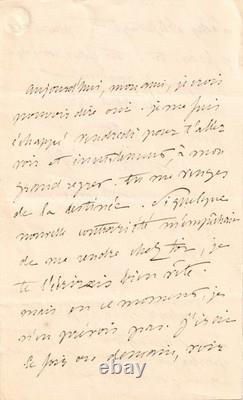 aujourd'hui, mon ami, je crois
pouvoir dire oui. je me suis
échappé vendredi pour t'aller
voir et inutilement, à mon
grand regret. tu me venges
de la destinée. si quelque
nouvelle contrariété m'empêchait
de me rendre chez toi, je
te l'écrirais bien vite.
mais en ce moment, je
n'en prévois pas. j'irai
ce soir ou demain, voir
ebay